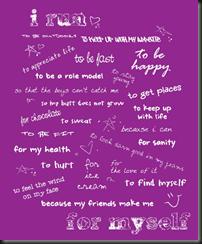 i run
to be outdoors
to keep up with my daughter
to appreciate life
to be fast
to be happy
to be a role model
to stay young
so that the boys can't catch me
to get places
so my butt does not grow
for chocolate
to keep up with life
to sweat
TO BE FIT
because i can
for my health
to look damn good in my jeans
for sanity
to hurt
for ice cream
for the love of it
to feel the wind on my face
to find myself
because my friends make me
for myself